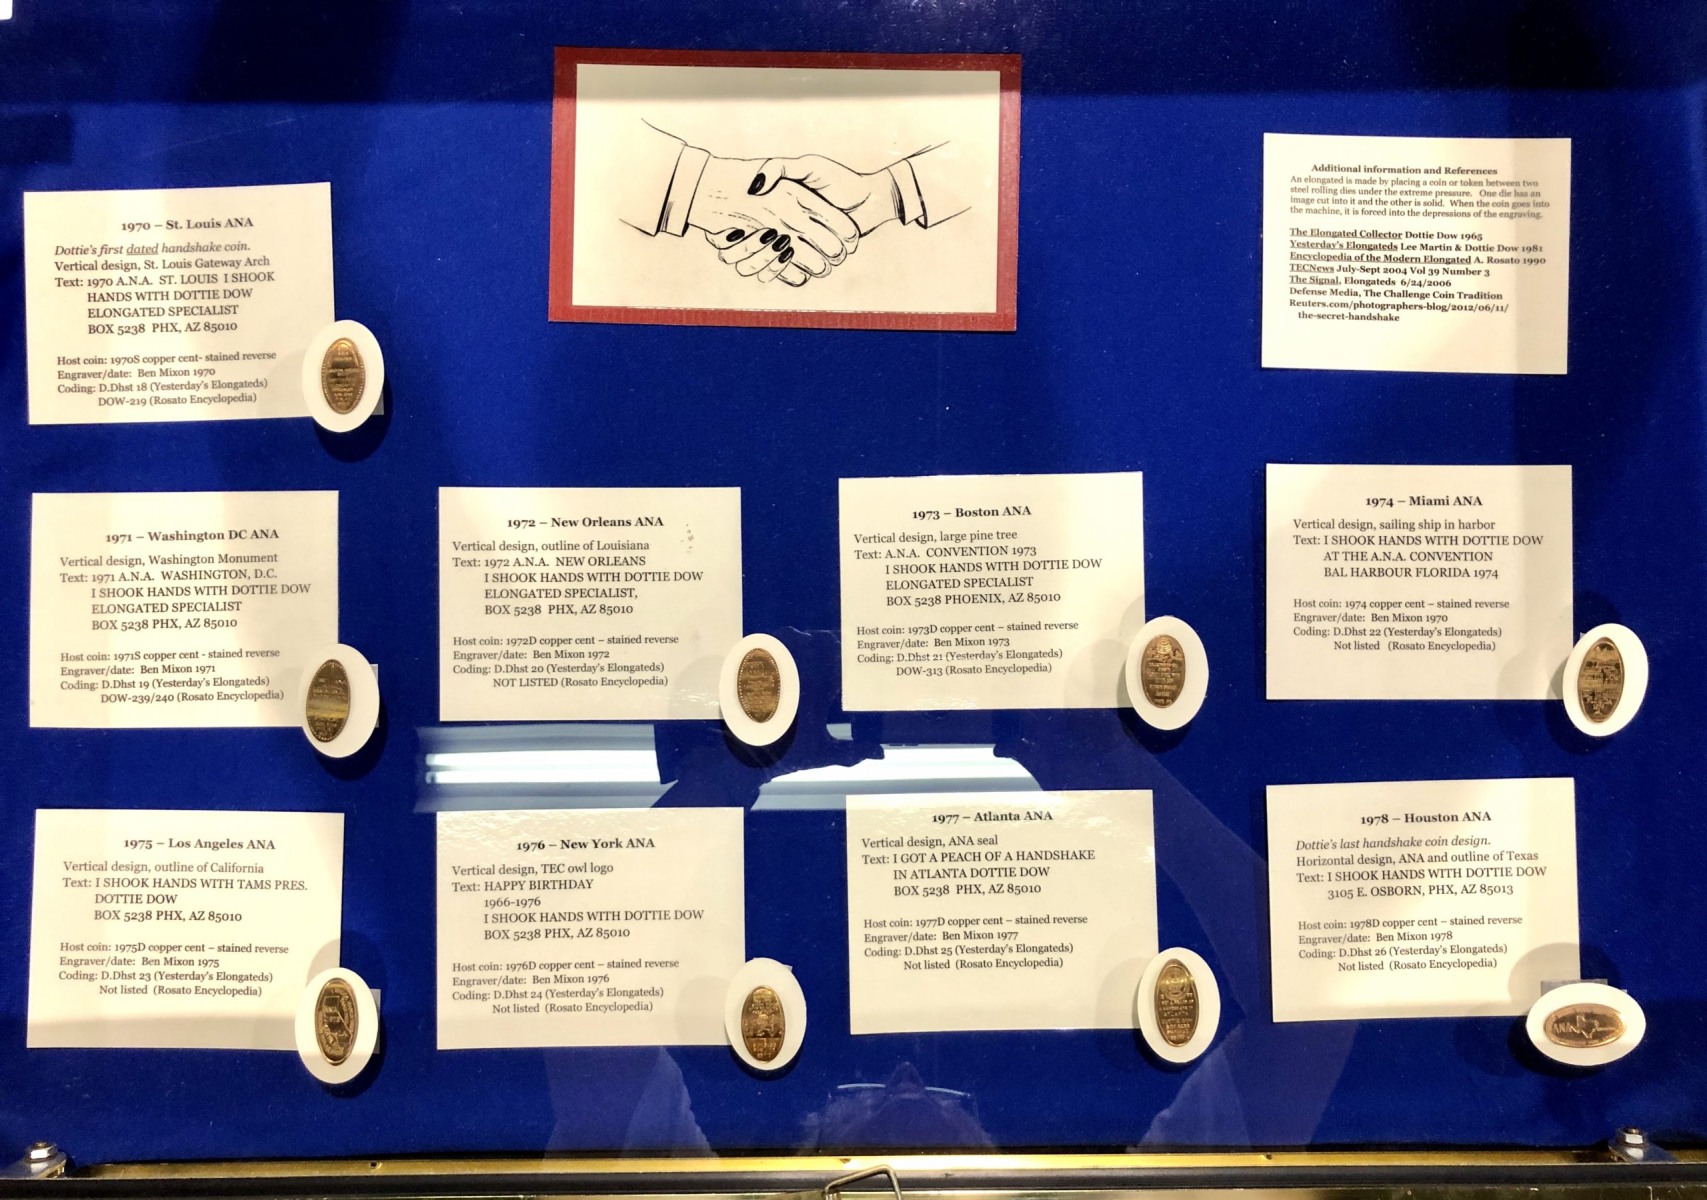 1970 – St. Louis ANA
Dottie's first dated handshake coin.
Vertical design, St. Louis Gateway Arch
Text: 1970 A.N.A. ST. LOUIS I SHOOK
HANDS WITH DOTTIE DOW
ELONGATED SPECIALIST
BOX 5238 PHX, AZ 85010
Host coin: 1970S copper cent- stained reverse
Engraver/date: Ben Mixon 1970
Coding: D.Dhst 18 (Yesterday's Elongateds)
DOW-219 (Rosato Encyclopedia)
Additional information and References
An elongated is made by placing a coin or token between two
steel rolling dies under the extreme pressure. One die has an
image cut into it and the other is solid. When the coin goes into
the machine, it is forced into the depressions of the engraving.
The Elongated Collector Dottie Dow 1965
Yesterday's Elongateds Lee Martin & Dottie Dow 1981
Encyclopedia of the Modern Elongated A. Rosato 1990
TECNews July-Sept 2004 Vol 39 Number 3
The Signal, Elongateds 6/24/2006
Defense Media, The Challenge Coin Tradition
Reuters.com/photographers-blog/2012/06/11/
the-secret-handshake
1971 – Washington DC ANA
Vertical design, Washington Monument
Text: 1971 A.N.A. WASHINGTON, D.C.
I SHOOK HANDS WITH DOTTIE DOW
ELONGATED SPECIALIST
BOX 5238 PHX, AZ 85010
Host coin: 1971S copper cent - stained reverse
Engraver/date: Ben Mixon 1971
Coding: D.Dhst 19 (Yesterday's Elongateds)
DOW-239/240 (Rosato Encyclopedia)
1972 – New Orleans ANA
Vertical design, outline of Louisiana
Text: 1972 A.N.A. NEW ORLEANS
I SHOOK HANDS WITH DOTTIE DOW
ELONGATED SPECIALIST,
BOX 5238 PHX, AZ 85010
Host coin: 1972D copper cent – stained reverse
Engraver/date: Ben Mixon 1972
Coding: D.Dhst 20 (Yesterday's Elongateds)
NOT LISTED (Rosato Encyclopedia)
1973 – Boston ANA
Vertical design, large pine tree
Text: A.N.A. CONVENTION 1973
I SHOOK HANDS WITH DOTTIE DOW
ELONGATED SPECIALIST
BOX 5238 PHOENIX, AZ 85010
Host coin: 1973D copper cent – stained reverse
Engraver/date: Ben Mixon 1973
Coding: D.Dhst 21 (Yesterday's Elongateds)
DOW-313 (Rosato Encyclopedia)
1974 – Miami ANA
Vertical design, sailing ship in harbor
Text: I SHOOK HANDS WITH DOTTIE DOW
AT THE A.N.A. CONVENTION
BAL HARBOUR FLORIDA 1974
Host coin: 1974 copper cent – stained reverse
Engraver/date: Ben Mixon 1970
Coding: D.Dhst 22 (Yesterday's Elongateds)
Not listed (Rosato Encyclopedia)
1975 – Los Angeles ANA
Vertical design, outline of California
Text: I SHOOK HANDS WITH TAMS PRES.
DOTTIE DOW
BOX 5238 PHX, AZ 85010
Host coin: 1975D copper cent – stained reverse
Engraver/date: Ben Mixon 1975
Coding: D.Dhst 23 (Yesterday's Elongateds)
Not listed (Rosato Encyclopedia)
1976 – New York ANA
Vertical design, TEC owl logo
Text: HAPPY BIRTHDAY
1966-1976
I SHOOK HANDS WITH DOTTIE DOW
BOX 5238 PHX, AZ 85010
Host coin: 1976D copper cent – stained reverse
Engraver/date: Ben Mixon 1976
Coding: D.Dhst 24 (Yesterday's Elongateds)
Not listed (Rosato Encyclopedia)
1977 – Atlanta ANA
Vertical design, ANA seal
Text: I GOT A PEACH OF A HANDSHAKE
IN ATLANTA DOTTIE DOW
BOX 5238 PHX, AZ 85010
Host coin: 1977D copper cent – stained reverse
Engraver/date: Ben Mixon 1977
Coding: D.Dhst 25 (Yesterday's Elongateds)
Not listed (Rosato Encyclopedia)
1978 – Houston ANA
Dottie's last handshake coin design.
Horizontal design, ANA and outline of Texas
Text: I SHOOK HANDS WITH DOTTIE DOW
3105 E. OSBORN, PHX, AZ 85013
Host coin: 1978D copper cent – stained reverse
Engraver/date: Ben Mixon 1978
Coding: D.Dhst 26 (Yesterday's Elongateds)
Not listed (Rosato Encyclopedia)
ANA